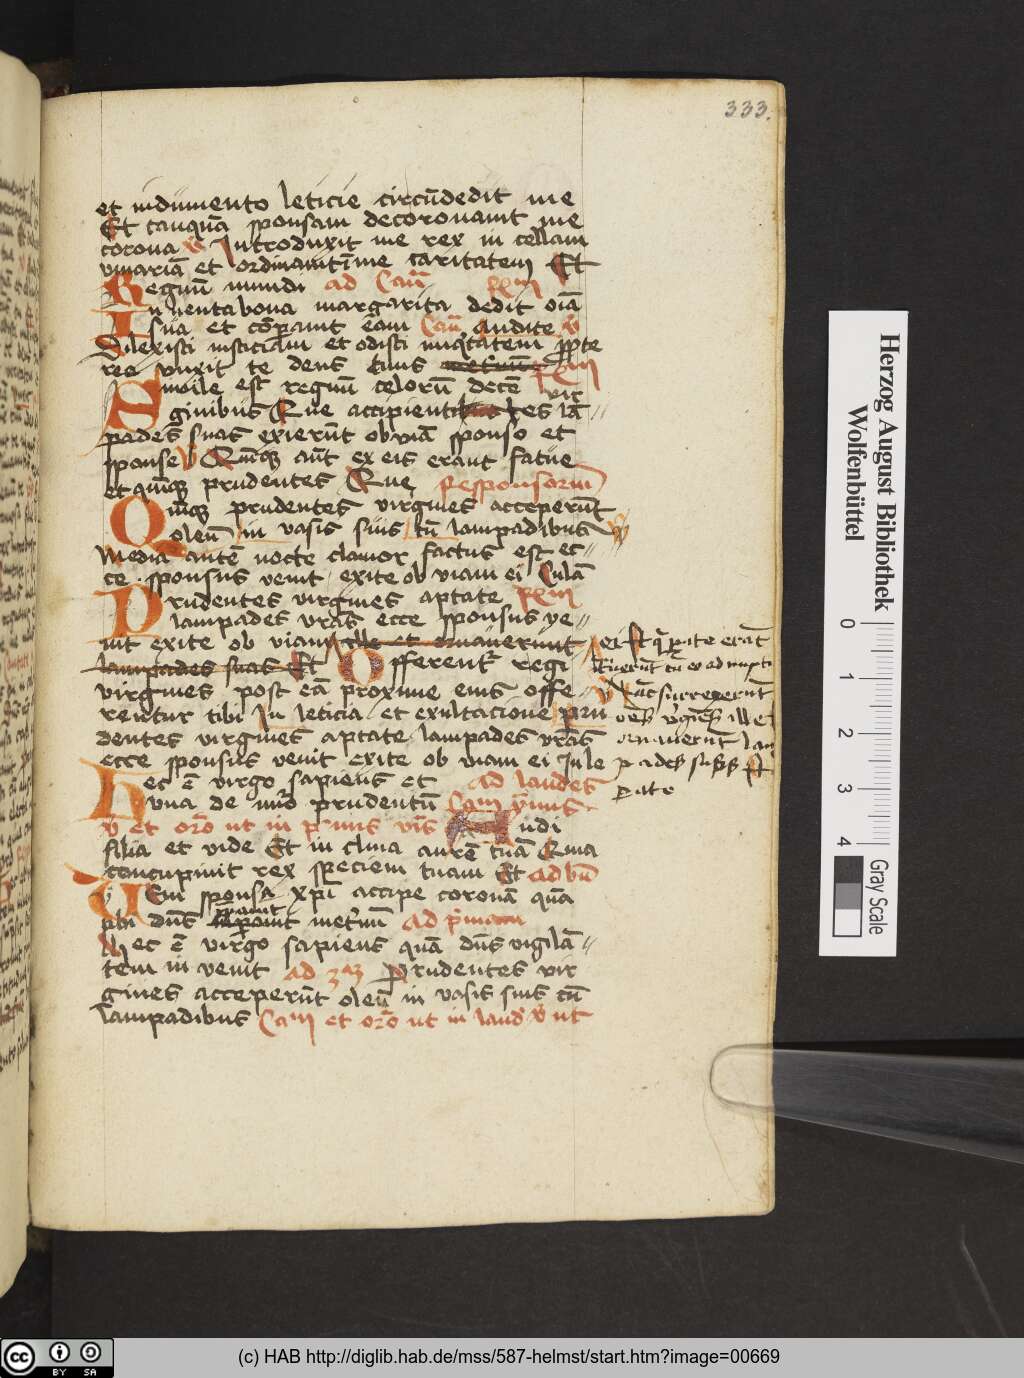 333.
et indumento leticie circūdedit me
Et tanquā sponsam decoronauit me
corona Introduxit me rex in cellam
vinariā et ordinauit ī me caritatem Et
Regnū mundi ad Cant
Inuenta bona margarita dedit oīa
sua et cōparauit eam Cant audite
Dilexisti iusticiam et odisti iniqtatem ppte
rea vnxit te deus tuus
Simile est regnū celorū decē vir
ginibus Que accipient es lā
pades suas exierūt obuiā sponso et
sponse Quīque aūt ex eis erant fatue
et quīque prudentes Que Responsoriū
Quīque prudentes virgines acceperūt
oleū in vasis suis cū lampadibus
Media autē nocte clamor factus est ec
ce sponsus venit exite ob viam ei Cū lā
Prudentes virgines aptate
lampades vras ecce sponsus ve
nit exite ob viam
lampades suas Et Offerentr regi
virgines post eā proxime eius offe
rentur tibi In leticia et exultacione pru
dentes virgines aptate lampades vras
ecce sponsus venit exite ob viam ei
Hec ē virgo sapiens et ad laudes
vna de nūo prudentū
et orō ut in primis vīs Audi
filia et vide Et in clina aurē tuā Quia
concupiuit rex speciem tuam Et ad bn
Veni sponsa xpi accipe coronā quā
tibi dns īeternū Ad primam
Hec ē virgo sapiens quā dns vigilā
tem in venit ad Prudentes vir
gines acceperūt oleū in vasis suis cū
lampadibus Cam et orō ut in laud ut
surrexerunt
Herzog August Bibliothek
Wolfenbüttel
0
1
2
3
4
Gray Scale
cc BY SA
(c) HAB http://diglib.hab.de/mss/587-helmst/start.htm?image=00669